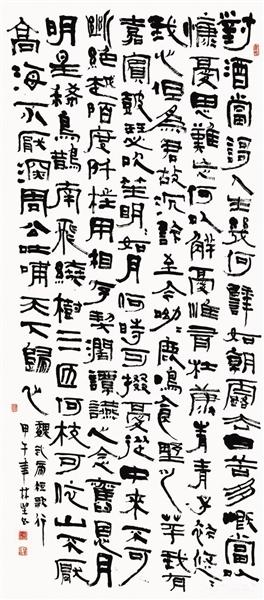 對酒當謌人生幾何譬如朝露去日苦多嘅當以
慷憂思難忘何以解憂惟有杜康青青子衿悠悠
我心但為君故沉吟至今呦呦鹿鳴食野之苹我有
嘉賓鼓瑟吹笙明明如月何時可掇憂從中來不可
斷絕越陌度阡枉用相存契闊譚讌心念舊恩月
明星稀烏鵲南飛繞樹三匝何枝可依山不厭
高海不厭深周公吐哺天下歸心
魏武帝短歌行
甲午年